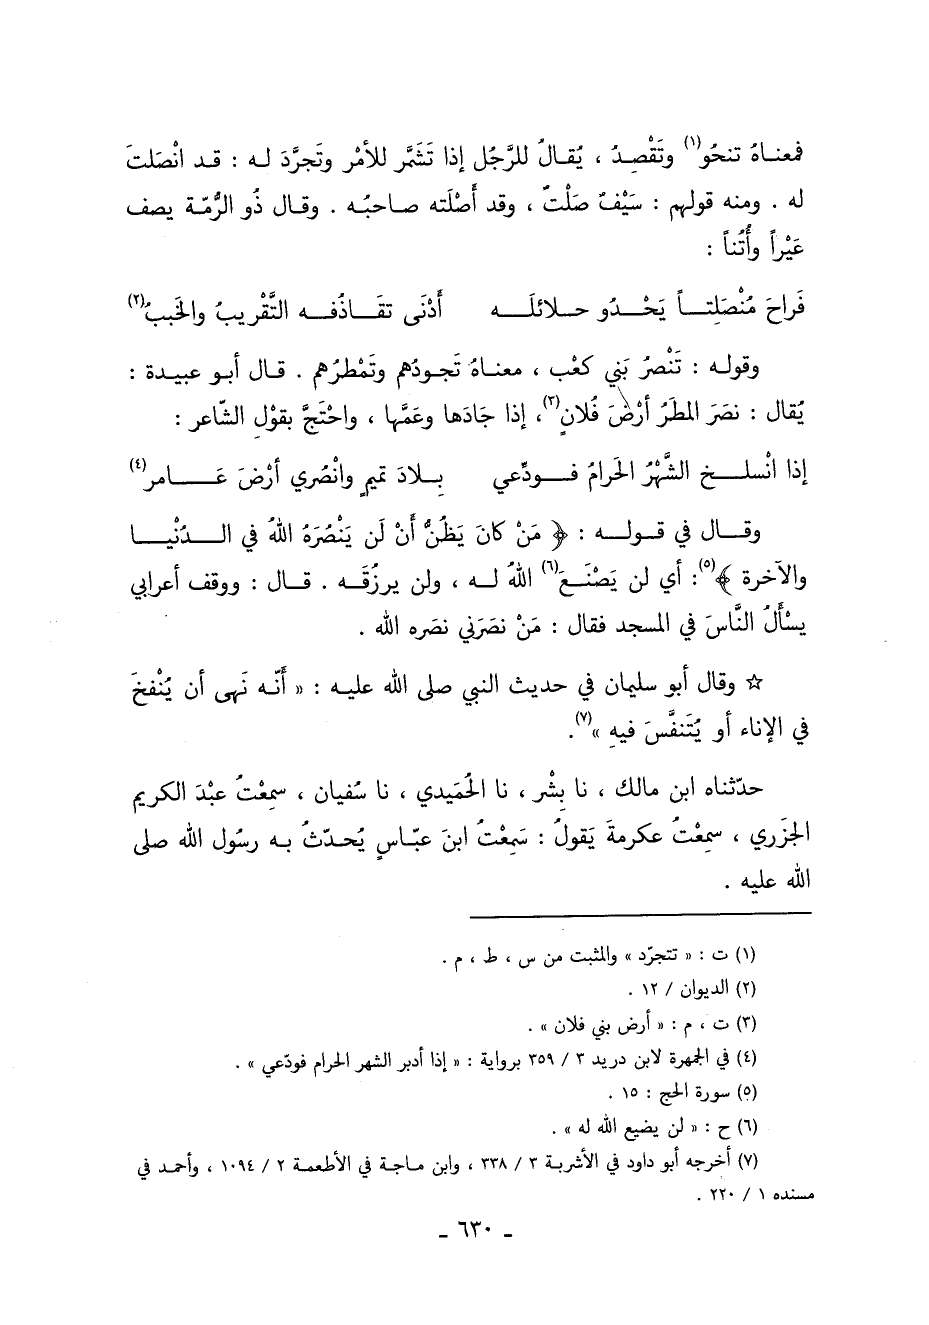 فمعناهُ تنحُو(١) وتَقْصِدُ ، يُقالُ للرَّجُل إذا تَشَمَّر للأمْر وتَجرَّدَ له : قد انْصَلتَ
له . ومنه قولهم : سَيْفٌ صَلْتٌ ، وقد أَصْلَته صاحبُه . وقال ذُو الرُّمّة يصف
عَيْراً وأُتُناً :
فَراحَ مُنْصَلِتاً يَحْدُو حلائلَه أَدْنَى تقَاذُفه التَّقْريبُ والخَببُ(٢)
وقوله : تَنْصُر بَني كعْب ، معناهُ تَجودُهم وتَمْطرُهم . قال أبو عبيدة :
يُقال : نصَرَ المطَرُ أرْضَ فُلانٍ(٣)، إذا جَادَها وعَمَّها ، واحْتجَّ بقوْل الشّاعر :
إذا انْسلخ الشَّهْرُ الحَرامُ فودّعي بِلادَ تميمٍ وانْصُري أرْضَ عَامر(٤)
وقال في قوله : ﴿ مَنْ كانَ يَظنُّ أَنْ لَن يَنْصُرَهُ اللهُ في الدُنْيا
والآخرة ﴾(٥): أي لن يَصْنَع(٦) اللهُ له ، ولن يرزُقَه . قال : ووقف أعرابي
يسْألُ النَّاسَ في المسجد فقال : مَنْ نصَرَني نصَره الله .
☆ وقال أبو سليمان في حديث النبي صلى الله عليه : « أَنّه نَهى أن يُنْفخَ
في الإناء أو يُتَنفَّسَ فيهِ »(٧).
حدّثناه ابن مالك ، نا بِشْر ، نا الحُمَيدي ، نا سُفيان ، سمِعْتُ عبْدَ الكريم
الجزَري ، سمِعْتُ عكرمةَ يَقولُ : سَمِعْتُ ابنَ عبّاسٍ يُحدّثُ به رسُول الله صلى
الله عليه .
(١) ت : « تتجرّد » والمثبت من س ، ط ، م .
(٢) الديوان / ١٢ .
(٣) ت ، م : « أرض بني فلان » .
(٤) في الجمهرة لابن دريد ٣ / ٣٥٩ برواية : « إذا أدبر الشهر الحرام فودّعي » .
(٥) سورة الحج : ١٥ .
(٦) ح : « لن يضيع الله له » .
(٧) أخرجه أبو داود في الأشربة ٣ / ٣٣٨ ، وابن ماجة في الأطعمة ٢ / ١٠٩٤ ، وأحمد في
مسنده ١ / ٢٢٠ .
- ٦٣٠ -